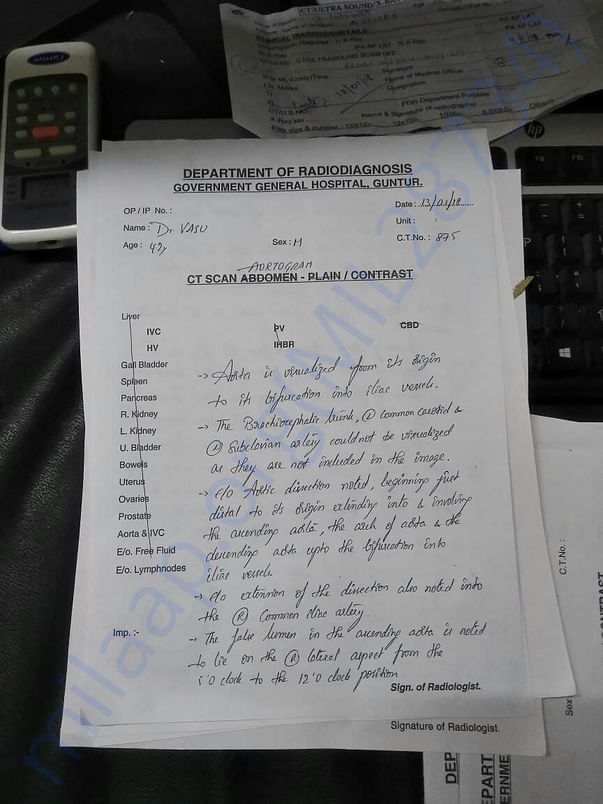 Carrier
CT/ULTRA SOUND/X-RAY
Signature
Name of Medical Officer
Designation
FOR Department Purpose
Name & Signature of radiographer
hp
DEPARTMENT OF RADIODIAGNOSIS
GOVERNMENT GENERAL HOSPITAL, GUNTUR.
OP / IP No. :
Date : 13/01/18
Name : Dr VASU
Unit :
Age : 42y
Sex : M
C.T.No. : 875
AORTOGRAM
CT SCAN ABDOMEN - PLAIN / CONTRAST
Liver
IVC PV CBD
HV IHBR
Gall Bladder
Spleen
Pancreas
R. Kidney
L. Kidney
U. Bladder
Bowels
Uterus
Ovaries
Prostate
Aorta & IVC
E/o. Free Fluid
E/o. Lymphnodes
-> Aorta is visualized from its origin
to its bifurcation into iliac vessels.
-> The Brachiocephalic trunk, (L) common carotid &
(L) subclavian artery could not be visualized
as they are not included in the image.
-> e/o Aortic dissection noted, beginning just
distal to its origin extending into & involving
the ascending aorta, the arch of aorta & the
descending aorta upto the bifurcation into
iliac vessels
-> e/o extension of the dissection also noted into
the (R) Common iliac artery.
Imp. :-
-> The false lumen in the ascending aorta is noted
to lie on the lateral aspect from the
o clock to the 12'o clock position
Sign. of Radiologist.
Signature of Radiologist.
C.T.No. :
Sex
milaap.org/MIL287347